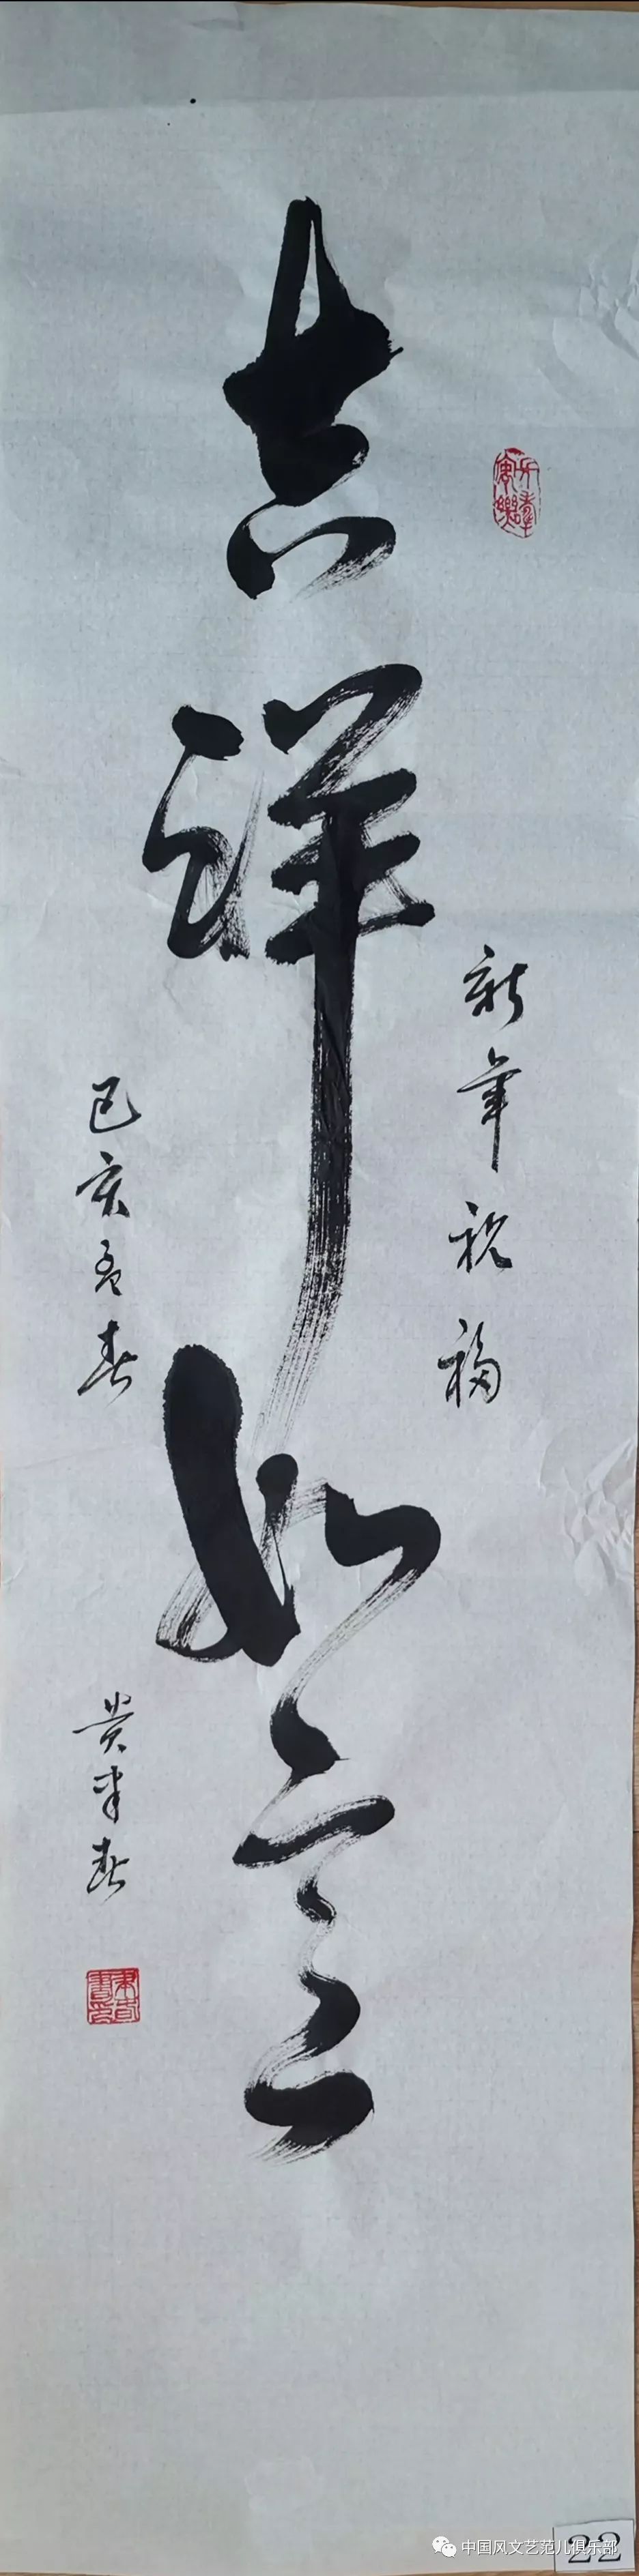 新年祝福
吉祥如意
己亥孟春
22
中国风文艺范儿俱乐部